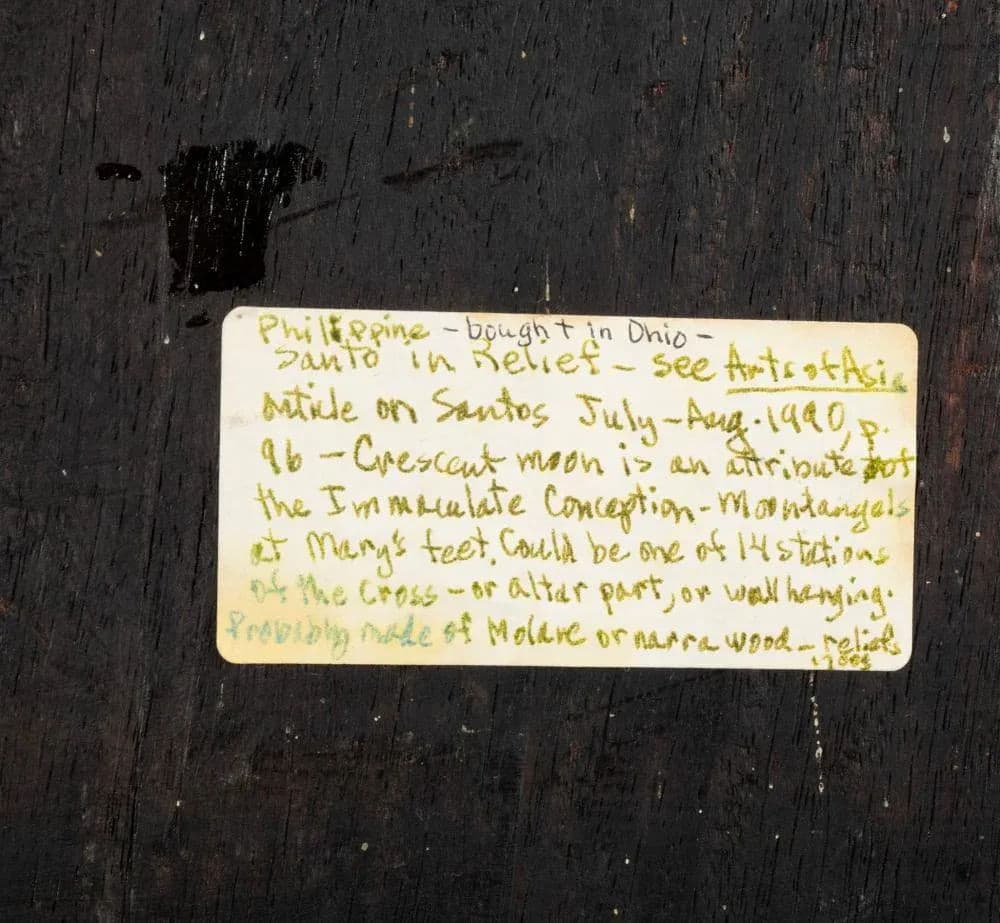 Philippine - bought in Ohio -
Santo in Relief - see Arts of Asia
article on Santos July-Aug. 1990, p.
96 - Crescent moon is an attribute of
the Immaculate Conception - Moon+angels
at Mary's feet. Could be one of 14 stations
of the Cross - or altar part, or wall hanging.
Probably made of Molave or narra wood - reliefs